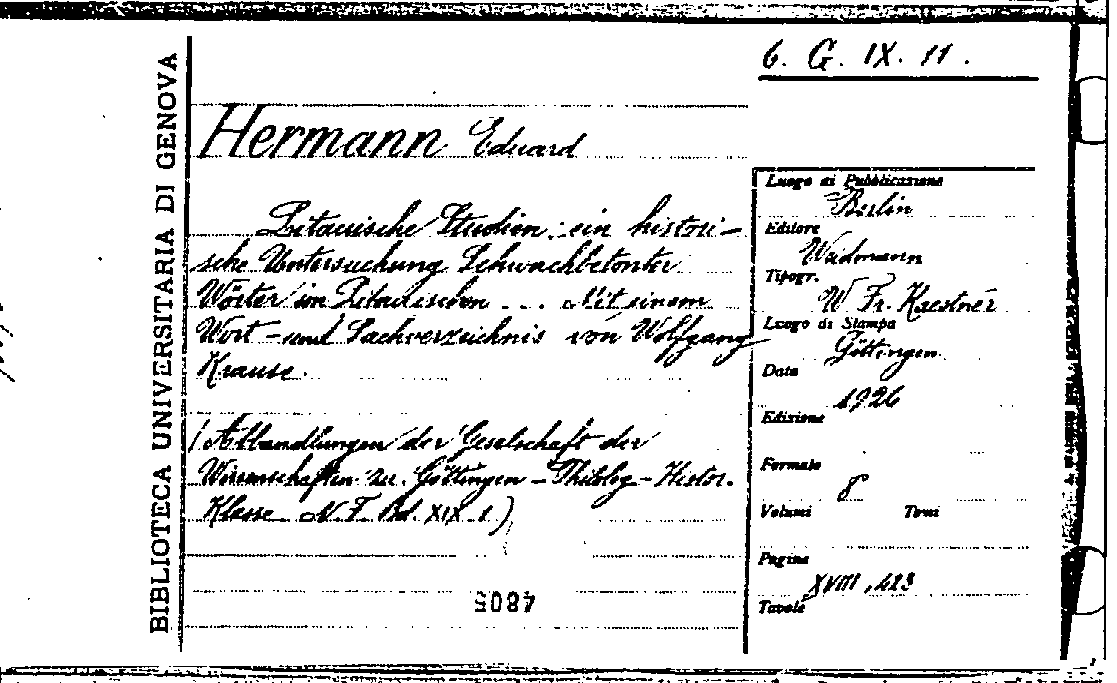 6. G. IX. 11.
BIBLIOTECA UNIVERSITARIA DI GENOVA
Hermann Eduard
Litauische Studien: ein histori-
sche Untersuchung Schwachbetonter
Wörter im Litauischen ... Mit einem
Wort - und Sachverzeichnis von Wolfgang
Krause.
(Abhandlungen der Gesellschaft der
Wissenschaften zu Göttingen - Philolog - Histor.
Klasse N. F. Bd. XIX 1)
4805
Luogo di Pubblicazione
Berlin
Editore
Weidmann
Tipogr.
W. Fr. Kaestner
Luogo di Stampa
Göttingen
Data
1926
Edizione
Formato
8°
Volumi Tomi
Pagine
XVIII, 423
Tavole